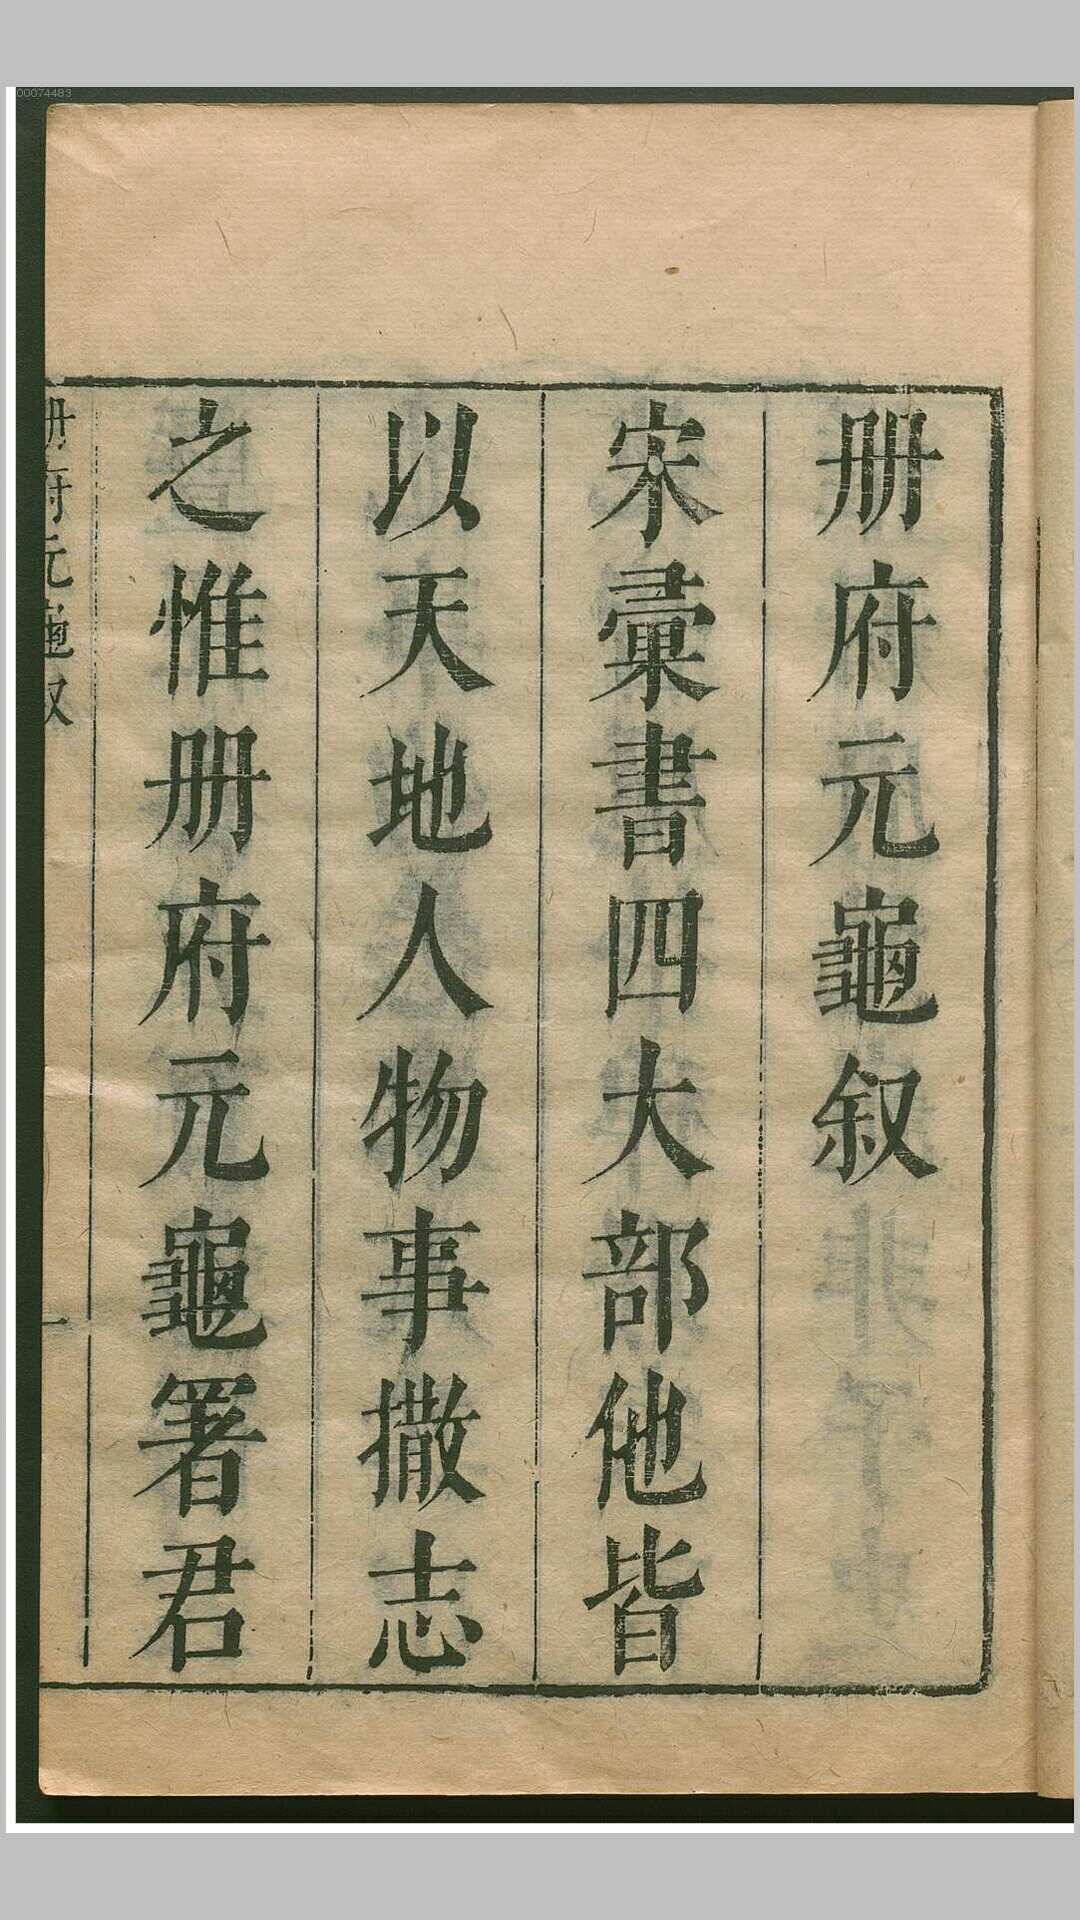 00074483
册府元龜叙
宋彚書四大部他皆
以天地人物事撒志
之惟册府元龜署君
册府元龜叙
一